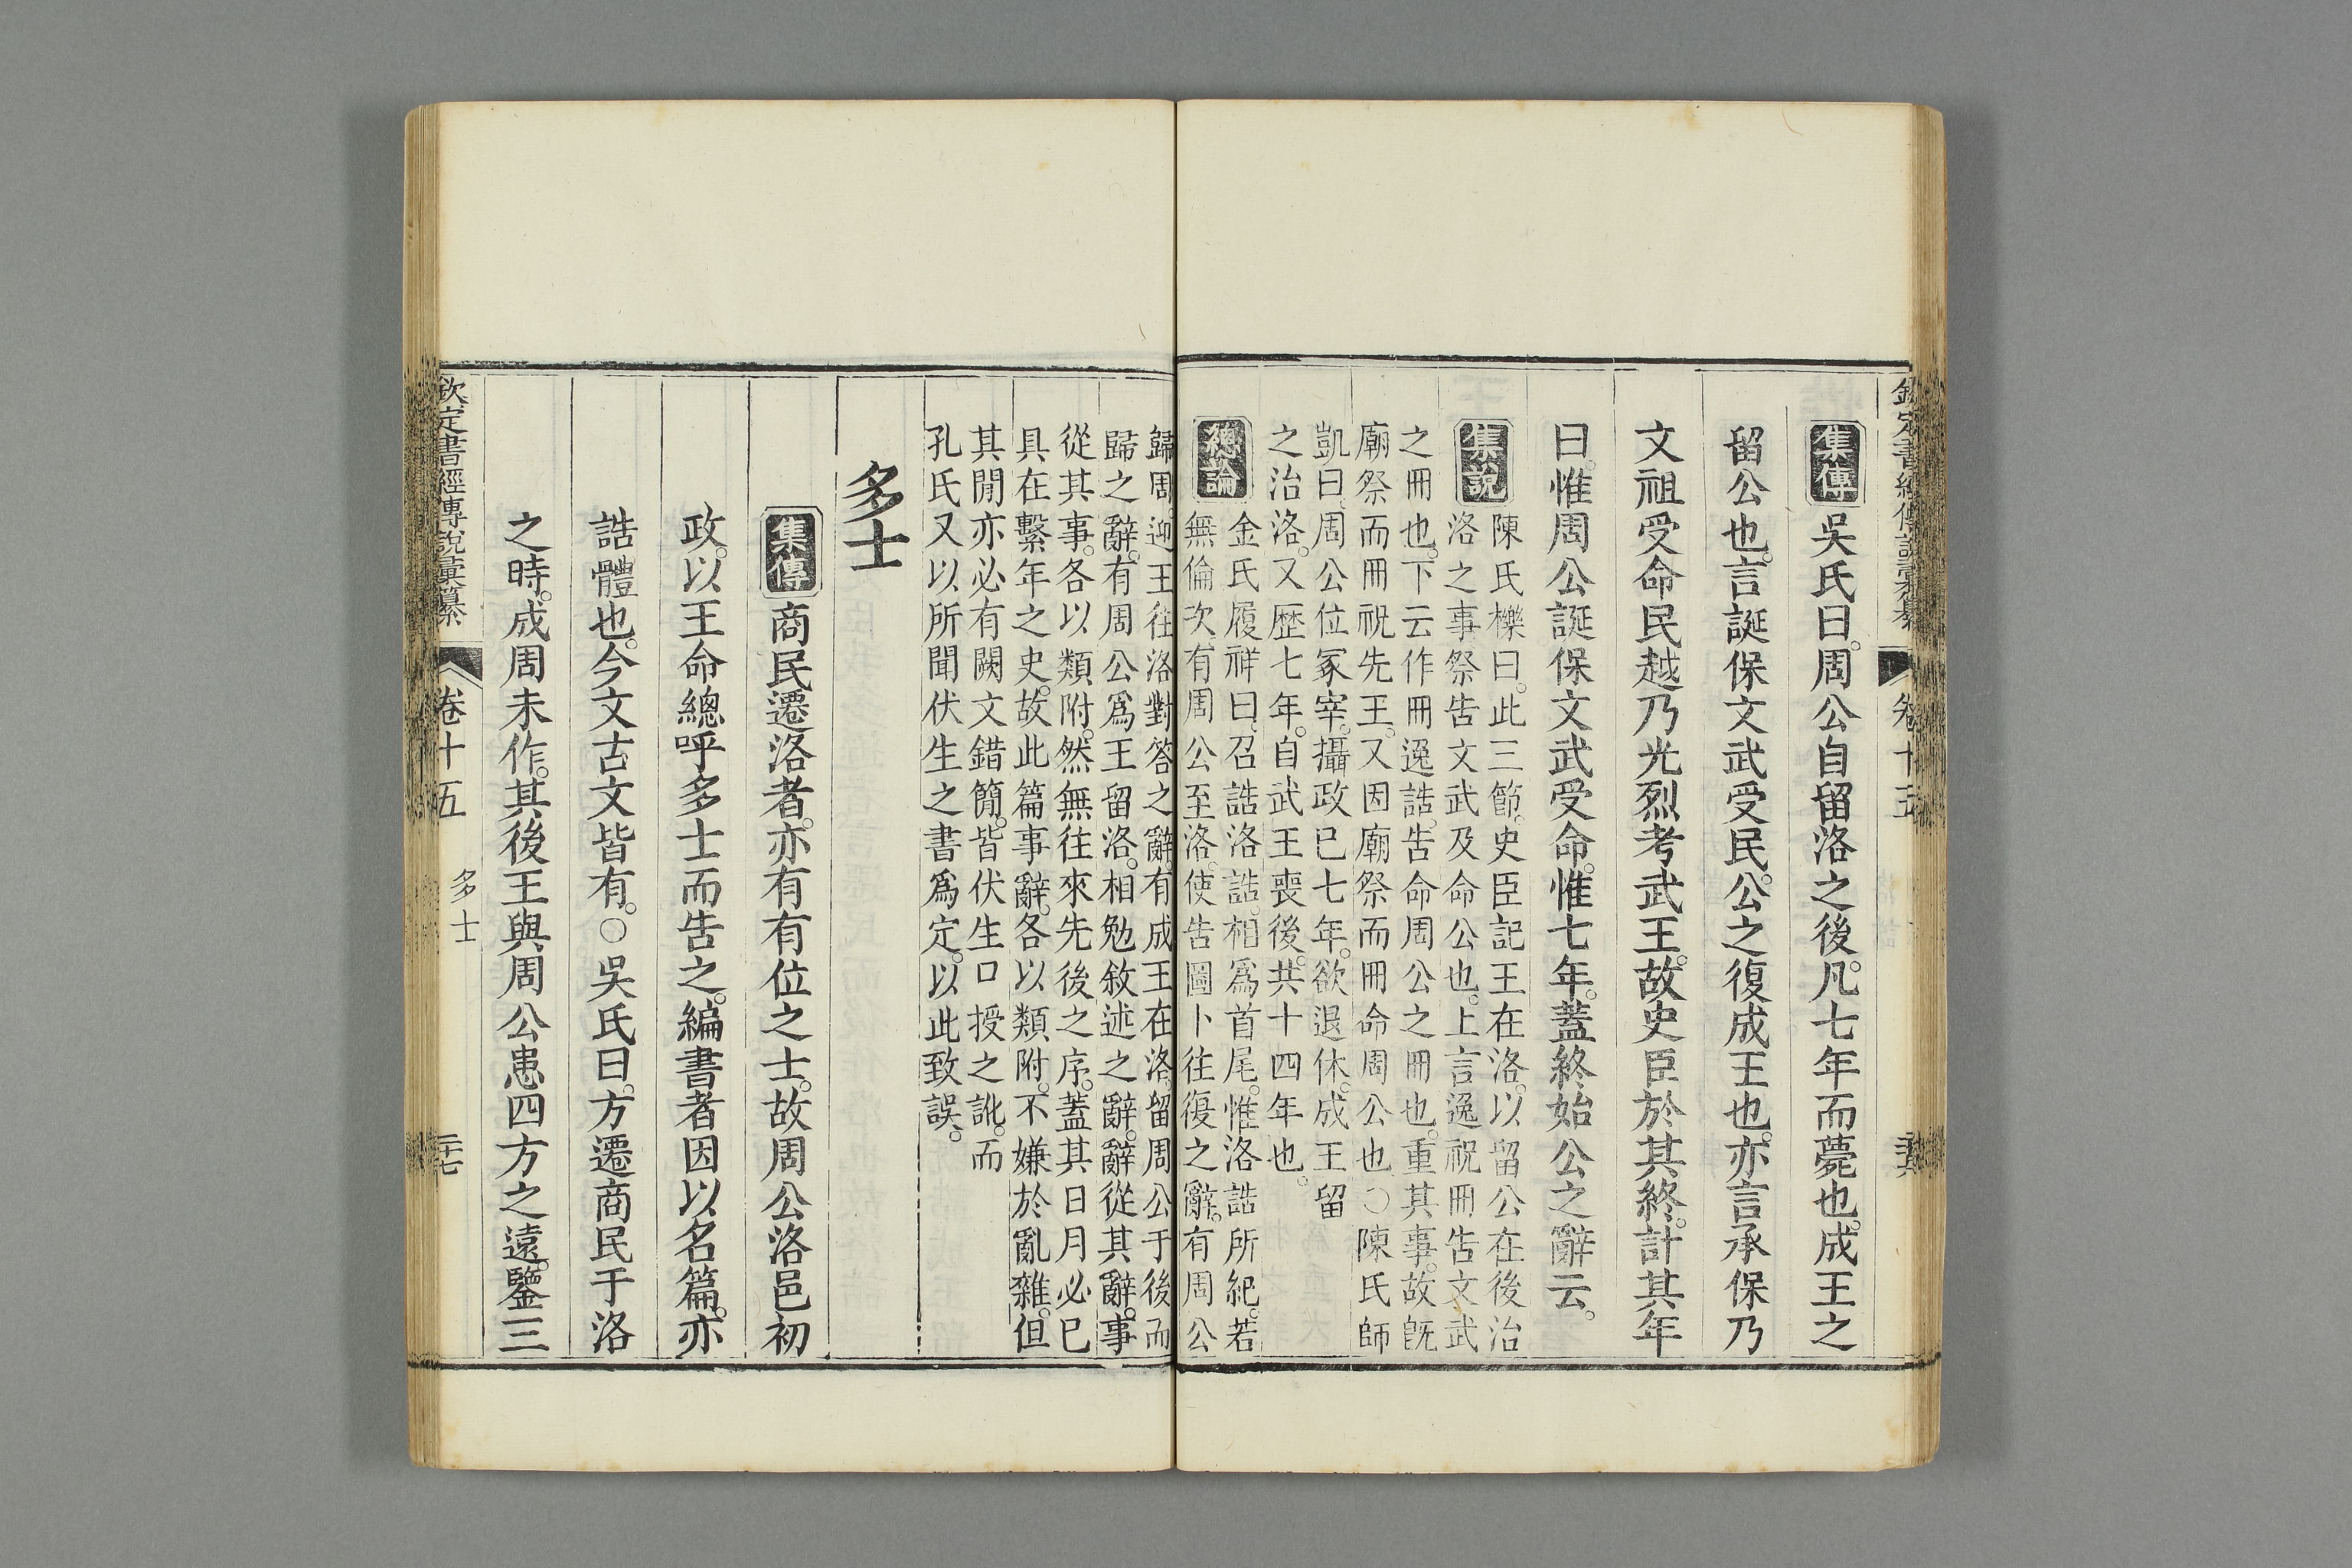 欽定書經傳說彙纂 卷十五
集傳 吳氏曰。周公自留洛之後。凡七年而薨也。成王之
留公也。言誕保文武受民。公之復成王也。亦言承保乃
文祖受命民越乃光烈考武王。故史臣於其終。計其年
曰。惟周公誕保文武受命。惟七年。蓋終始公之辭云。
集說 陳氏櫟曰。此三節。史臣記王在洛。以留公在後治
洛之事祭告文武及命公也。上言逸祝冊告文武
之冊也。下云作冊逸誥。告命周公之冊也。重其事。故旣
廟祭而冊祝先王。又因廟祭而冊命周公也。○陳氏師
凱曰。周公位冢宰。攝政已七年。欲退休。成王留
之治洛。又歷七年。自武王喪後。共十四年也。
總論 金氏履祥曰。召誥洛誥。相爲首尾。惟洛誥所紀。若
無倫次。有周公至洛。使告圖卜往復之辭。有周公
歸周。迎王往洛對答之辭。有成王在洛。留周公于後而
歸之辭。有周公爲王留洛。相勉敘述之辭。辭從其辭。事
從其事。各以類附。然無往來先後之序。蓋其日月必已
具在繫年之史。故此篇事辭。各以類附。不嫌於亂雜。但
其閒亦必有闕文錯簡。皆伏生口授之訛。而
孔氏又以所聞伏生之書爲定。以此致誤。
多士
集傳 商民遷洛者。亦有有位之士。故周公洛邑初
政。以王命總呼多士而告之。編書者因以名篇。亦
誥體也。今文古文皆有。○吳氏曰。方遷商民于洛
之時。成周未作。其後王與周公患四方之遠。鑒三
欽定書經傳說彙纂 卷十五 多士 三十七